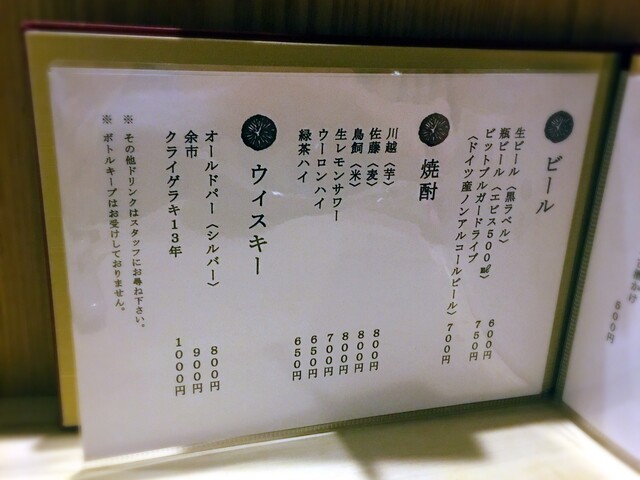 ビール
生ビール〈黒ラベル〉 600円
瓶ビール〈エビス500㎖〉 750円
ビットブルガードライブ
〈ドイツ産ノンアルコールビール〉 700円
焼酎
川越〈芋〉 800円
佐藤〈麦〉 800円
鳥飼〈米〉 800円
生レモンサワー 700円
ウーロンハイ 650円
緑茶ハイ 650円
ウィスキー
オールドパー〈シルバー〉 800円
余市 900円
クライゲラキ13年 1000円
※ その他ドリンクはスタッフにお尋ね下さい。
※ ボトルキープはお受けしておりません。
800円